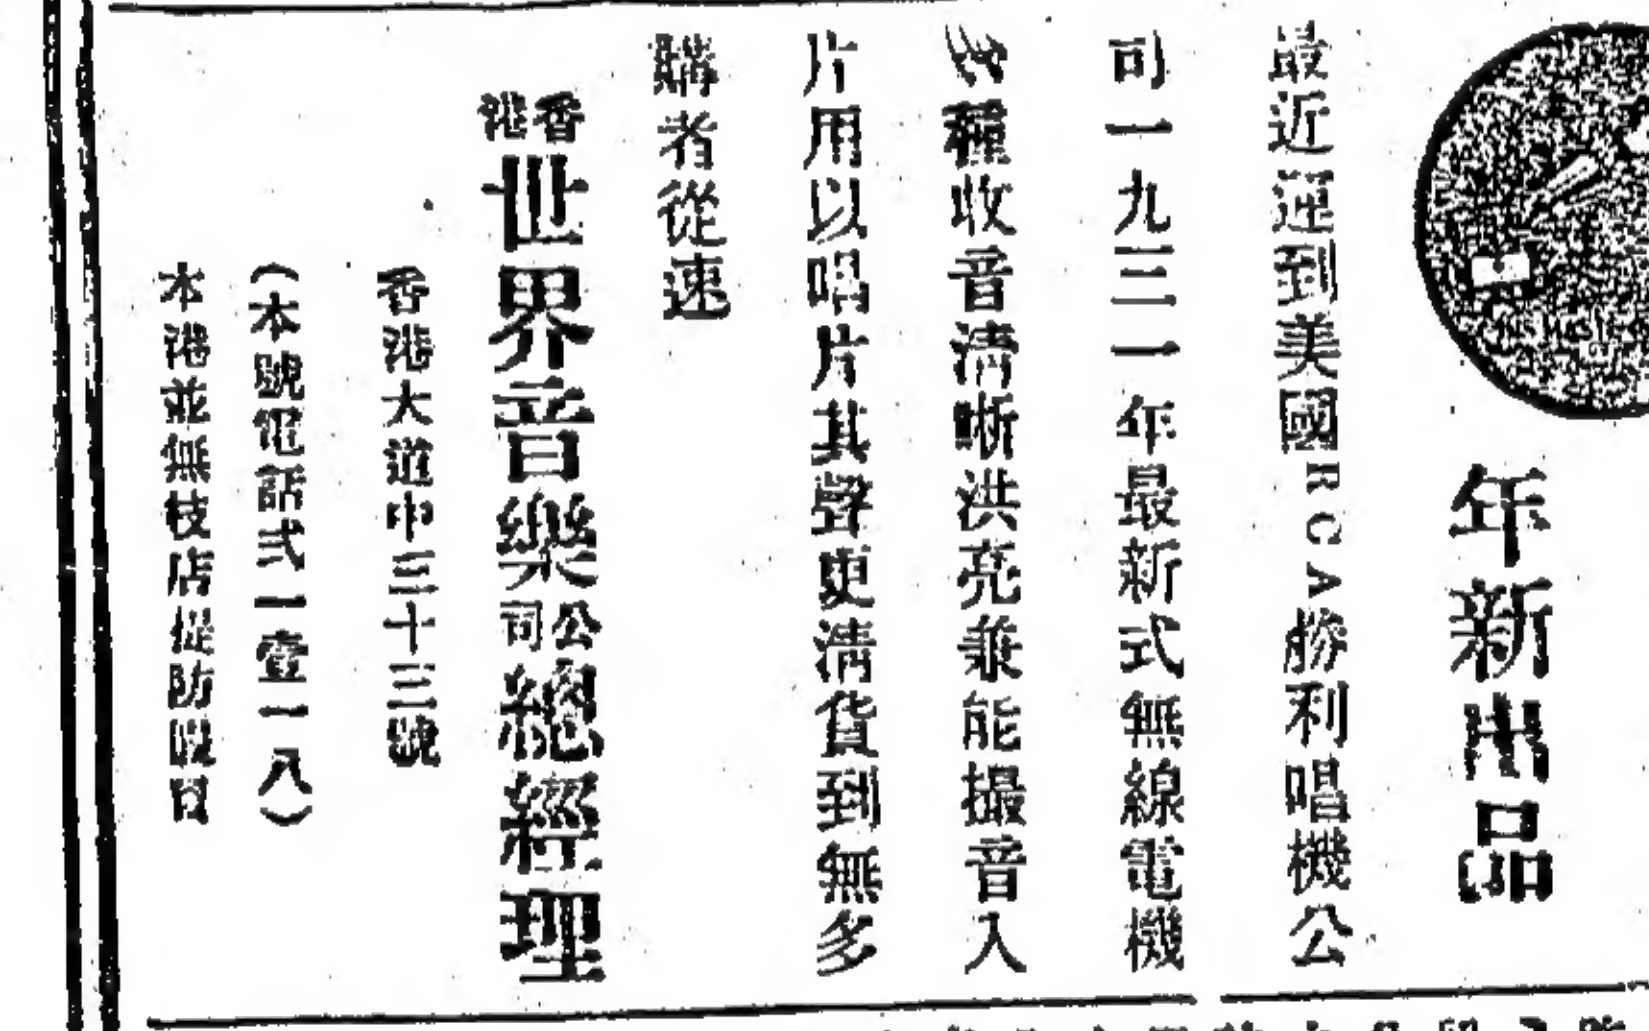 年新出品
最近運到美國RCA勝利唱機公
司一九三一年最新式無線電機
種收音清晰洪亮兼能撮音入
片用以唱片其聲更清貨到無多
購者從速
香港世界音樂公司總經理
香港大道中三十三號
(本號電話式一壹一八)
本港並無枝店提防假冒